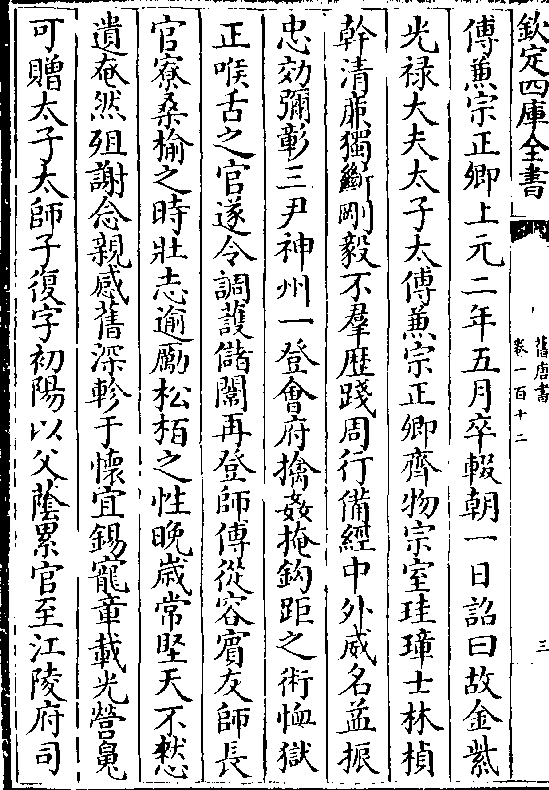 欽定四庫全書
舊唐書
卷一百十二
三
傅蒹宗正卿上元二年五月卒輟朝一日詔曰故金紫
光禄大夫太子太傅蒹宗正卿齊物宗室珪璋士林楨
幹清亷獨斷剛毅不羣歴踐周行備經中外威名益振
忠効彌彰三尹神州一登會府擒姦掩鈎距之術恤獄
正喉舌之官遂令調䕶儲闈再登師傅從容賓友師長
官寮桑榆之時壯志逾勵松栢之性晚嵗常堅天不憗
遺奄然殂謝念親感舊深軫于懷宜錫寵章載光營䰟
可贈太子太師子復字初陽以父蔭累官至江陵府司